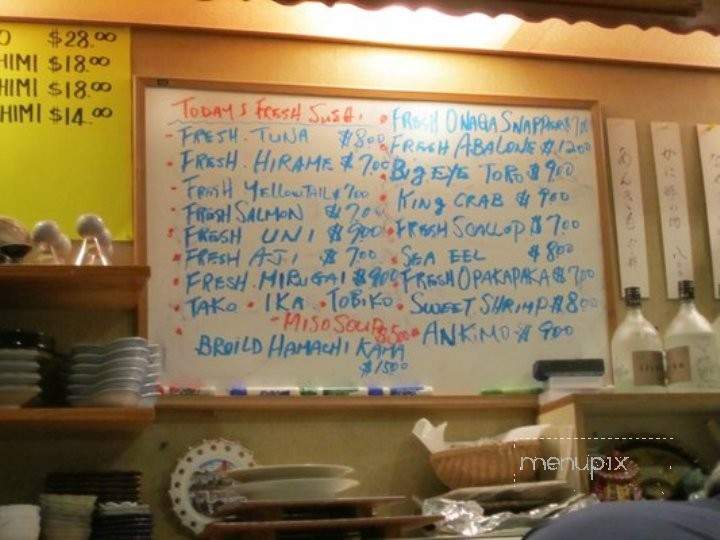 O $28.00
HIMI $18.00
HIMI $18.00
HIMI $14.00
TODAYS FRESH SUSHI
FRESH. TUNA $800
FRESH. HIRAME $700
FRESH YELLOWTAIL $700
FRESH SALMON $700
FRESH UNI $900
FRESH AJI $700
FRESH MIRUGAI $900
TAKO • IKA • TOBIKO
- MISO SOUP $500
BROILD HAMACHI KAMA
$1500
FRESH ONAGA SNAPPER $700
FRESH ABALONE $1200
BIG EYE TORO $900
KING CRAB $900
FRESH SCALLOP $700
SEA EEL $800
FRESH OPAKAPAKA $700
SWEET SHRIMP $800
ANKIMO $900
menupix